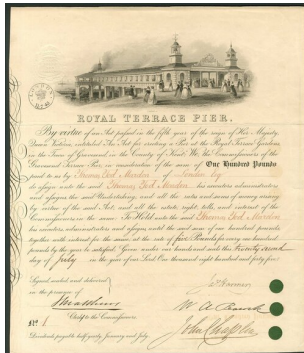 ROYAL TERRACE PIER.
By virtue of an Act passed in the fifth year of the reign of Her Majesty
Queen Victoria, entitled An Act for erecting a Pier at the Royal Terrace Gardens
in the Town of Gravesend in the County of Kent, We, the Commissioners of the
Gravesend Terrace Pier, in consideration of the sum of One Hundred Pounds
paid to us by Thomas of London Esq
do assign unto the said Thomas his executors administrators
and assigns the said Undertaking, and all the rates and sums of money arising
by virtue of the said Act, and all the estate, right, title, and interest of the
Commissioners in the same: To Hold unto the said Thomas
his executors, administrators and assigns until the said sum of one hundred pounds
together with interest for the same, at the rate of five Pounds for every one hundred
pounds by the year be satisfied. Given under our hands and seals the Twenty second
day of July in the year of our Lord One thousand eight hundred and forty five
Signed, sealed and delivered
in the presence of
Clerk to the Commissioners.
John Chaplin
No. 1
Dividends payable half yearly, January and July.